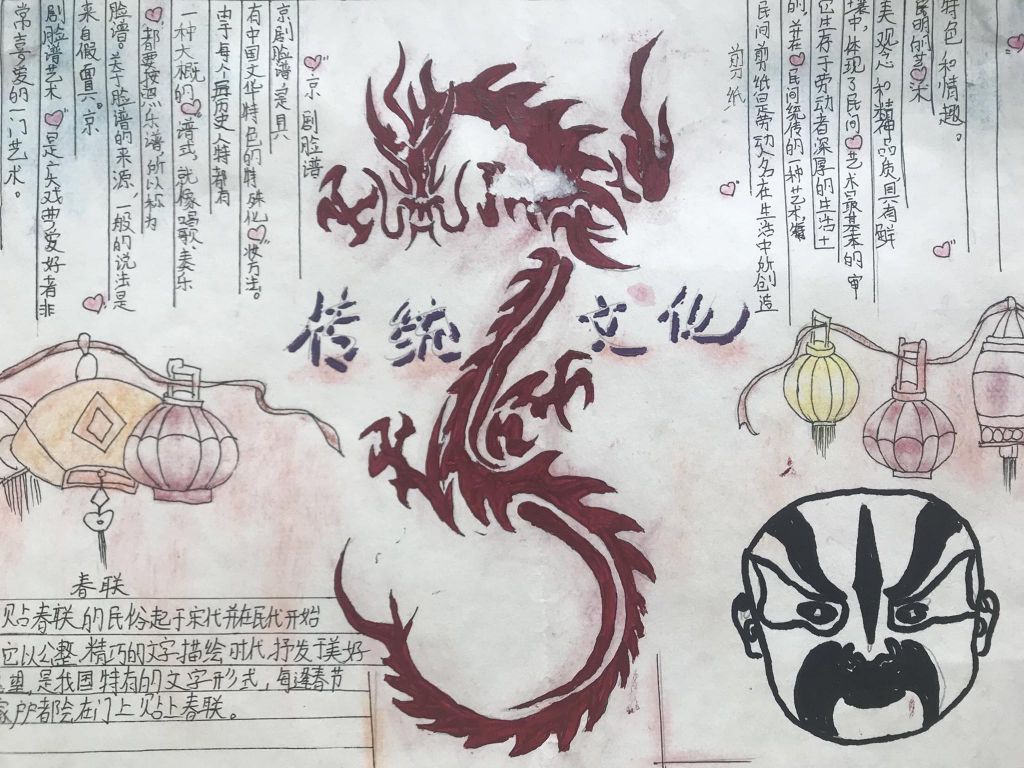 京剧脸谱
京剧脸谱是具
有中国文华特色的特殊化妆方法。
由于每个再历史人特都有
一种大概的谱式,就像唱歌、奏乐
都要按照乐谱,所以称为
脸谱。关于脸谱的来源,一般的说法是
来自假面具。京
剧脸谱艺术是广大戏曲爱好者非
常喜爱的一门艺术。
传统文化
剪纸
民间剪纸是劳动人名在生活中所创造
的,并在民间统传的一种艺术
它生存于劳动者深厚的生活土
壤中,体现了民间艺术最基本的审
美观念和精神品质具有鲜
明的艺术
特色和情趣。
春联
贴春联的民俗起于宋代并在民代开始
它以公整、精巧的文字描绘时代,抒发于美好
是我国特有的文字形式,每逢春节
家户户都会在门上贴上春联。